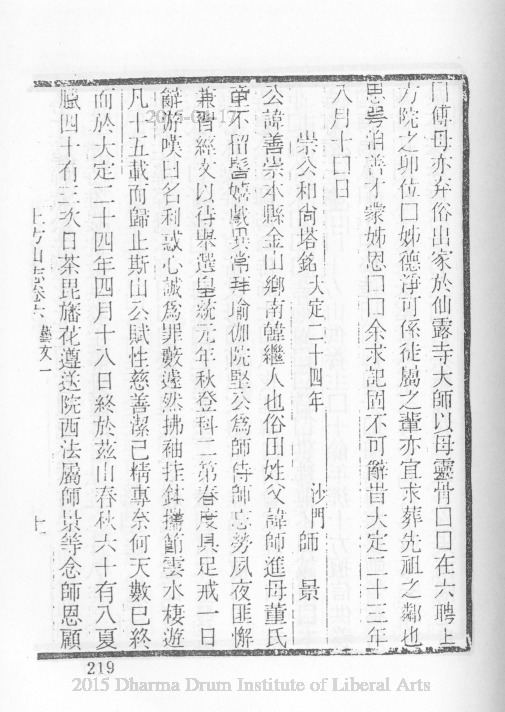 口傅母亦弃俗出家於仙露寺大師以母靈骨口口在六聘上
方院之卯位口姊德淨可係徒屬之輩亦宜求葬先祖之鄰也
思善泊善才衆姊恩口口余求記固不可辭告大定二十三年
八月十口日
崇公和尙塔銘 大定二十四年 沙門師 景
公諱善崇本縣金山鄉南韓繼人也俗田姓父諱師進母董氏
童不留髻嬉戲異常拜瑜伽院堅公爲師侍師忘勞夙夜匪懈
兼習經文以待舉選皇統元年秋登科二第春度具足戒一日
辭游嘆曰名利惑心誠爲罪藪遽然拂袖挂錫攜節雲水棲遊
凡十五載而歸止斯山公賦性慈善潔己精專奈何天數已終
而於大定二十四年四月十八日終於茲山春秋六十有八夏
臘四十有三次日茶毘旛花遵送院西法屬師景等念師恩顧
上方山志卷六 藝文一 十一
219
2015 Dharma Drum Institute of Liberal Arts